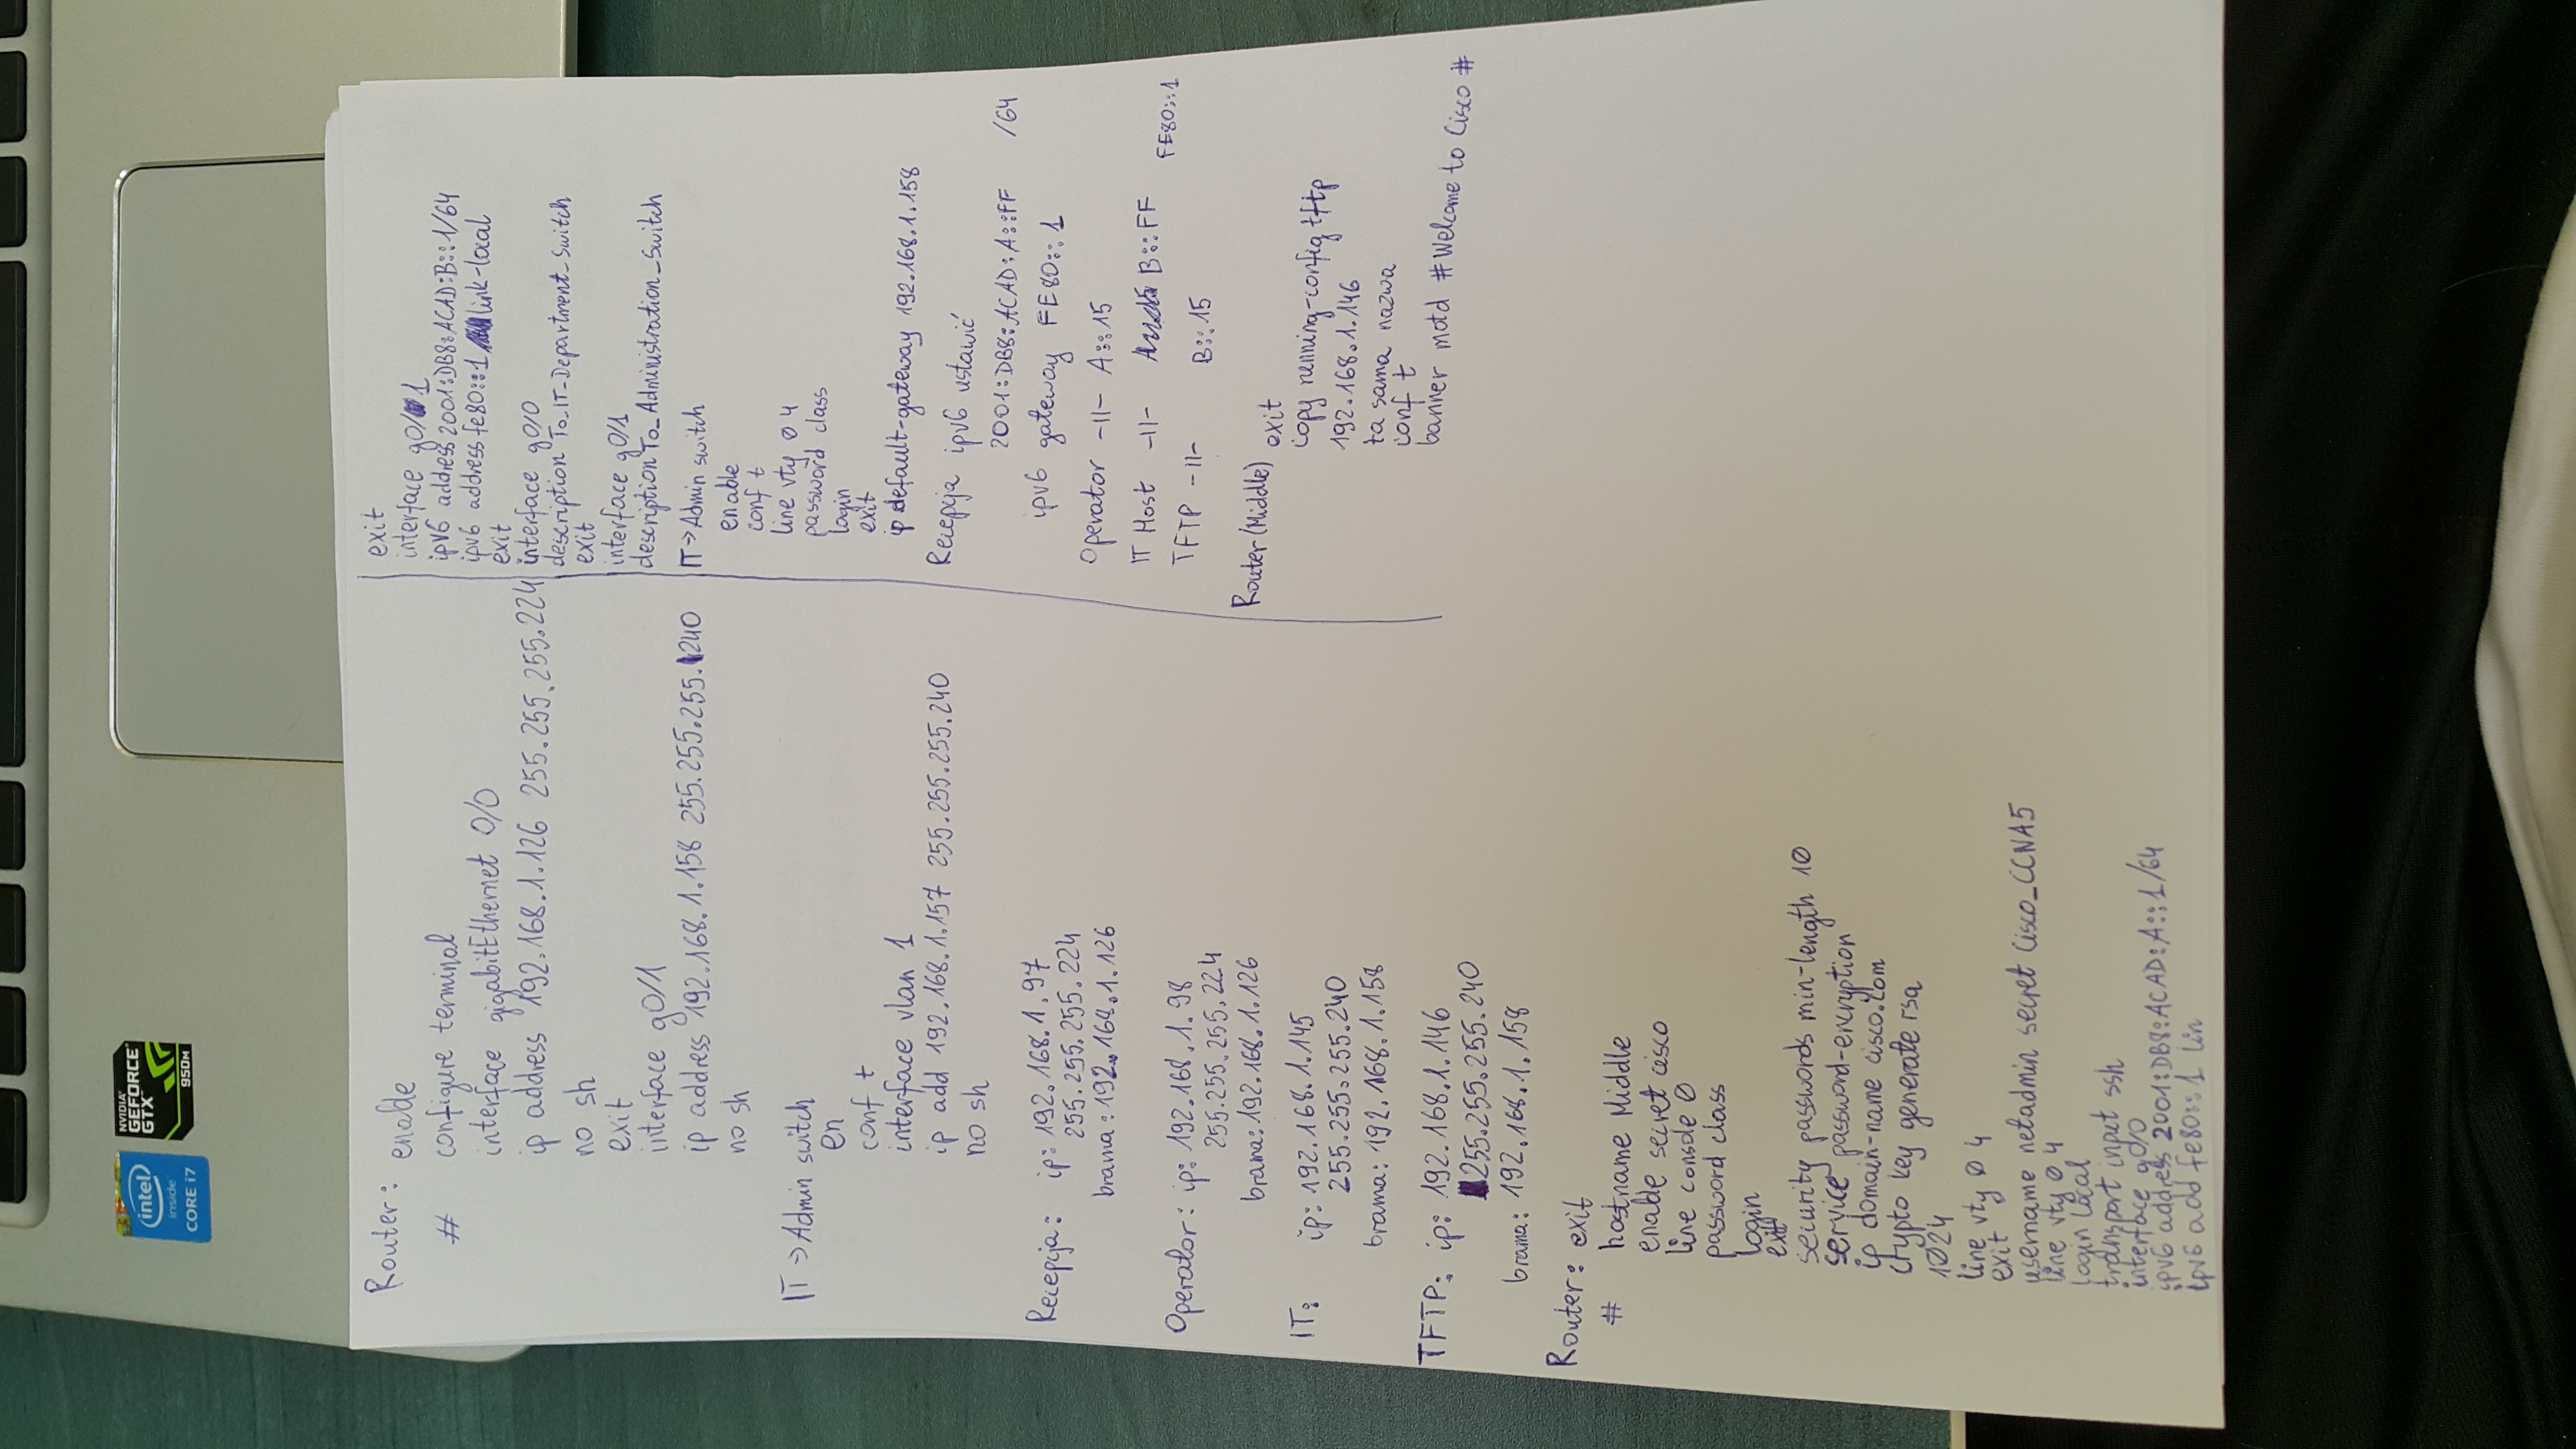 intel
inside™
CORE i7
NVIDIA®
GEFORCE®
GTX™
950M
Router: enable
# configure terminal
interface gigabitEthernet 0/0
ip address 192.168.1.126 255.255.255.224
no sh
exit
interface g0/1
ip address 192.168.1.158 255.255.255.240
no sh
IT → Admin switch
en
conf t
interface vlan 1
ip add 192.168.1.157 255.255.255.240
no sh
Recepcja: ip: 192.168.1.97
255.255.255.224
brama: 192.168.1.126
Operator: ip: 192.168.1.98
255.255.255.224
brama: 192.168.1.126
IT: ip: 192.168.1.145
255.255.255.240
brama: 192.168.1.158
TFTP: ip: 192.168.1.146
255.255.255.240
brama: 192.168.1.158
Router: exit
# hostname Middle
enable secret cisco
line console 0
password class
login
exit
security passwords min-length 10
service password-encryption
ip domain-name cisco.com
crypto key generate rsa
1024
line vty 0 4
exit
username netadmin secret Cisco_CCNA5
line vty 0 4
login local
transport input ssh
interface g0/0
ipv6 address 2001:DB8:ACAD:A::1/64
ipv6 add fe80::1 lin
exit
interface g0/1
ipv6 address 2001:DB8:ACAD:B::1/64
ipv6 address fe80::1 link-local
exit
interface g0/0
description To_IT-Department_Switch
exit
interface g0/1
description To_Administration_Switch
IT → Admin switch
enable
conf t
line vty 0 4
password class
login
exit
ip default-gateway 192.168.1.158
Recepcja ipv6 ustawić
2001:DB8:ACAD:A::FF /64
ipv6 gateway FE80::1
Operator -||- A::15
IT Host -||- B::FF FE80::1
TFTP -||- B::15
Router (Middle) exit
copy running-config tftp
192.168.1.146
ta sama nazwa
conf t
banner motd #Welcome to Cisco #